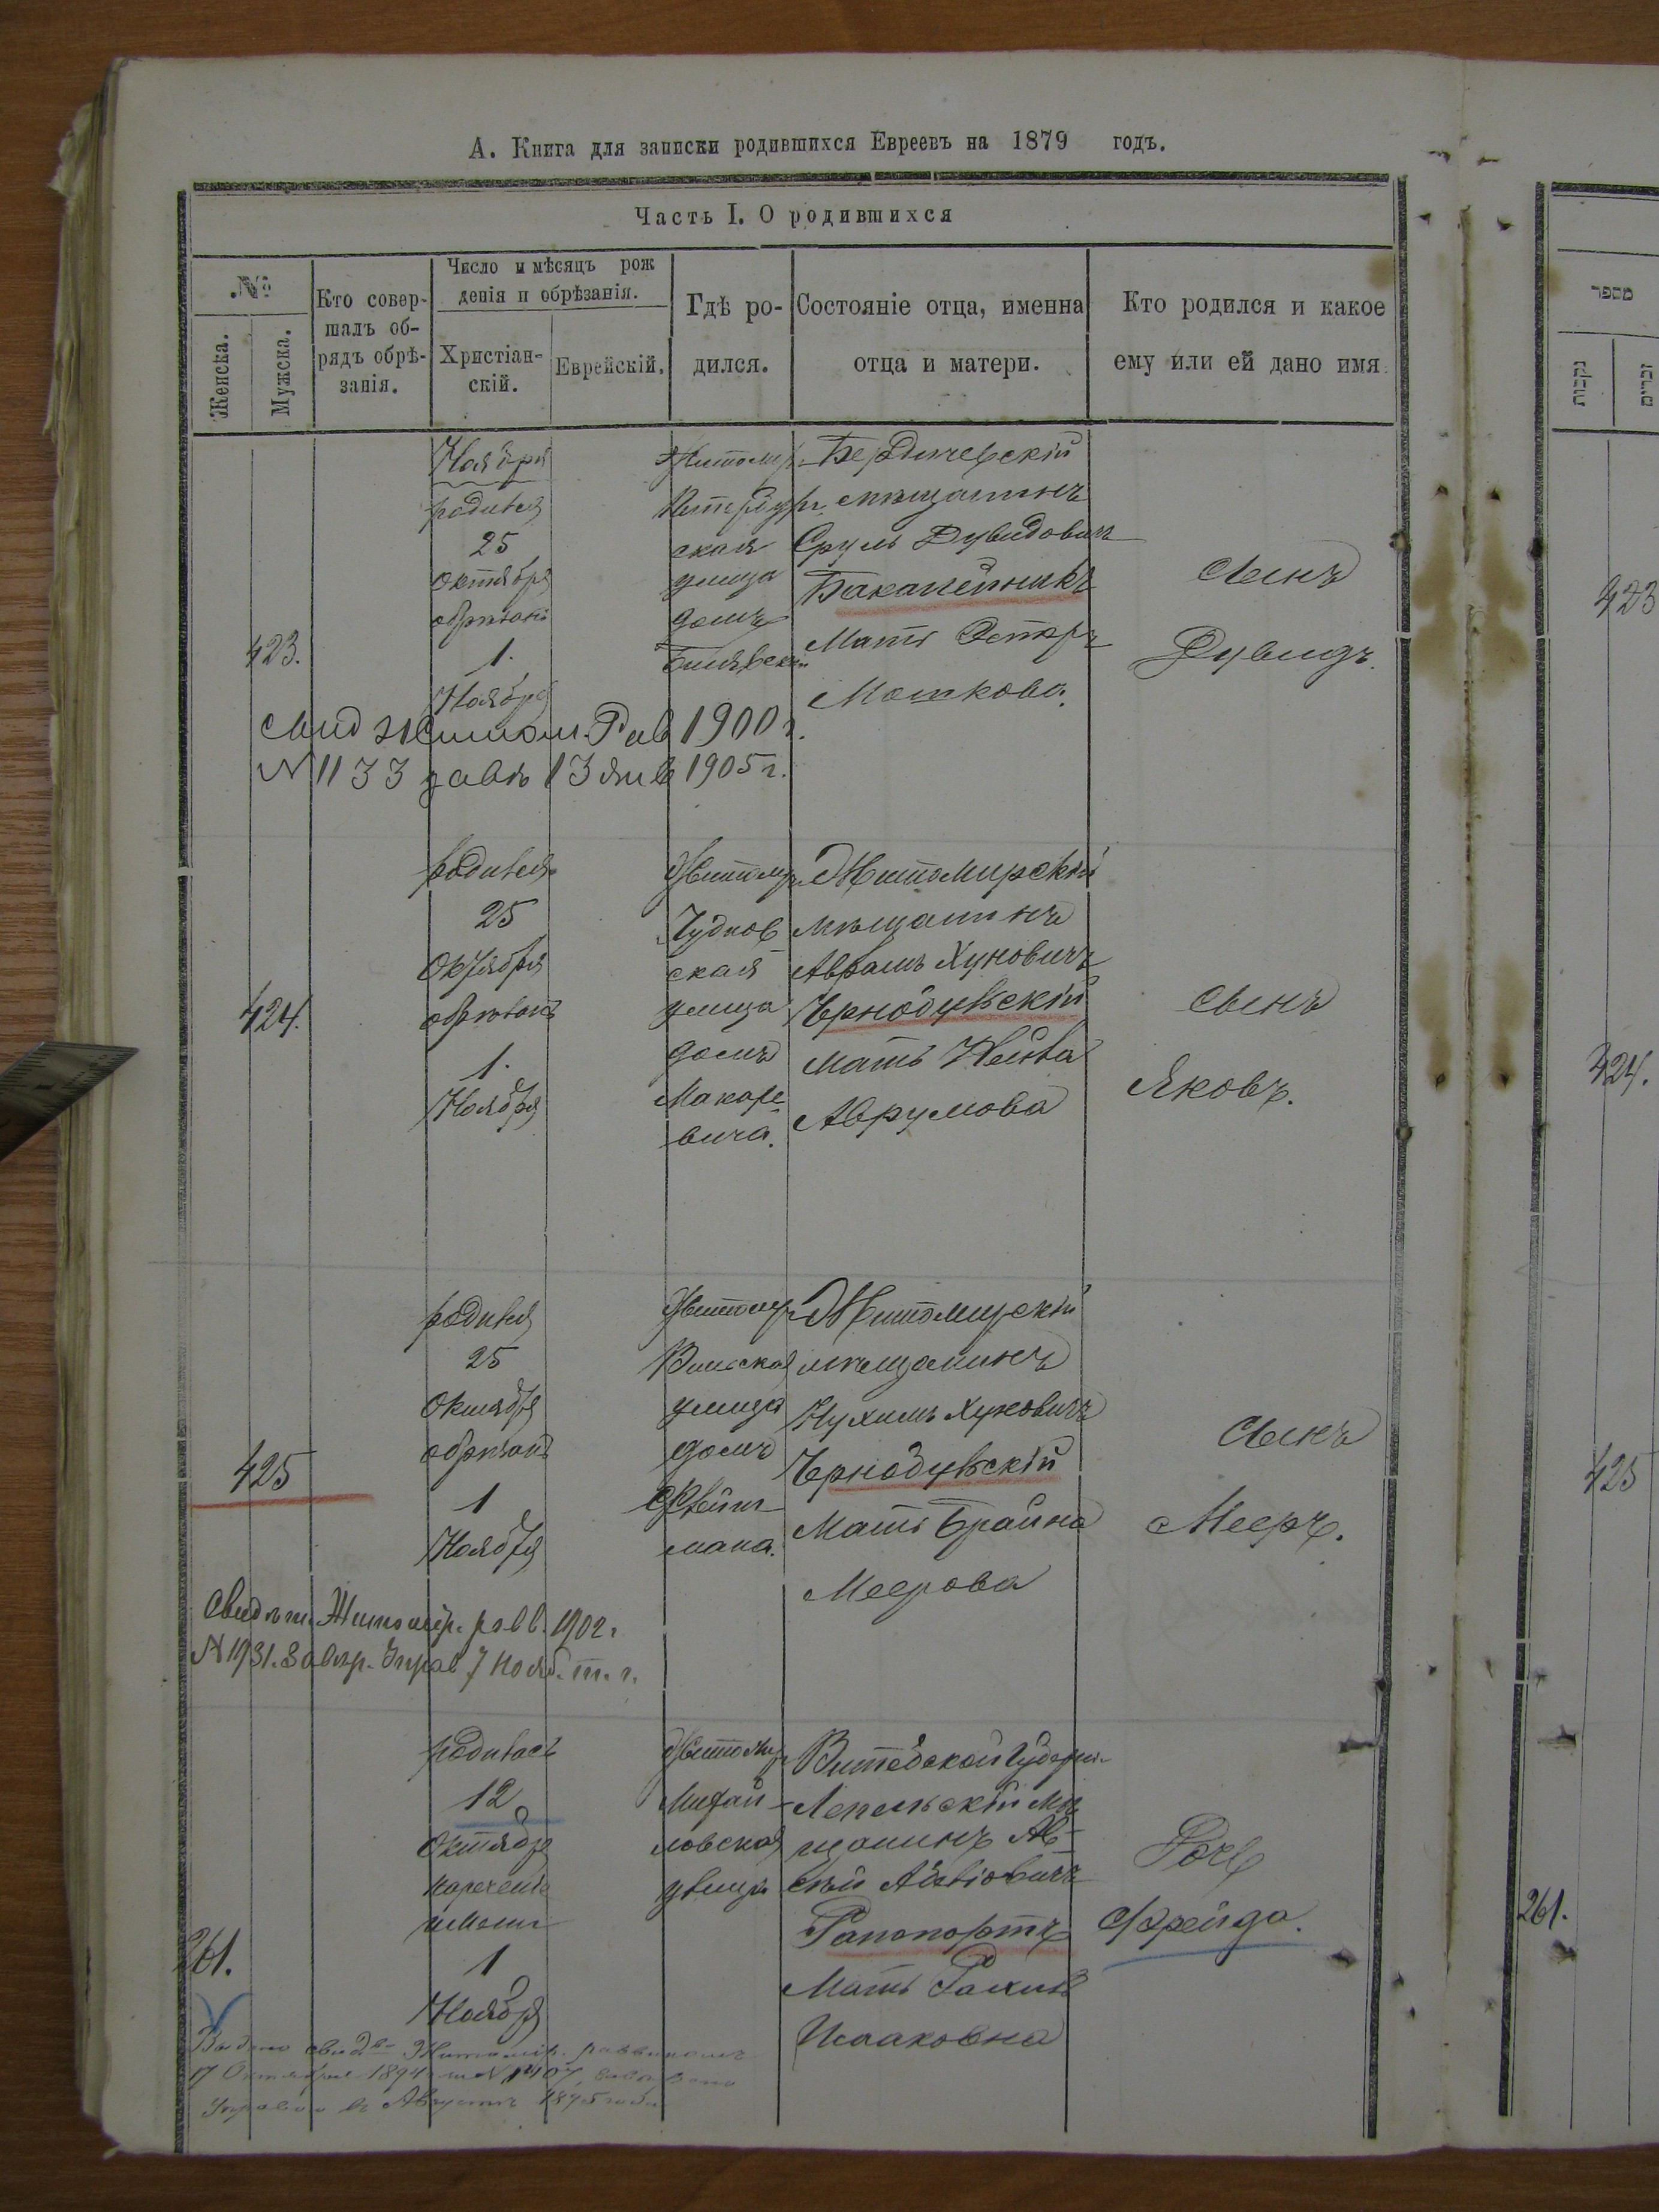 А. Книга для записки родившихся Евреевъ на 1879 годъ.
Часть I. О родившихся
№
Женска.
Мужска.
Кто совер-
шалъ об-
рядъ обрѣ-
занія.
Число и мѣсяцъ рож
денія и обрѣзанія.
Христіан-
скій.
Еврейскій.
Гдѣ ро-
дился.
Состояніе отца, именна
отца и матери.
Кто родился и какое
ему или ей дано имя.
423.
Ноября
родился
25
октября
обрѣзанъ
1.
Ноября
Житомир
Петербург
ская
улица
домъ
Бердичевскій
мѣщанинъ
Сруль Дувидовичъ
Бакалейникъ
Мать Эстеръ
Мошкова.
Сынъ
Дувидъ.
Свид Житом. Рав 1900 г.
N 1133 завѣ 13 янв 1905 г.
424.
родился
25
Октября
обрѣзанъ
1.
Ноября
Житомир
Чуднов
ская
улица
домъ
Макаре
вича.
Житомирскій
мѣщанинъ
Аврамъ Хуновичъ
Чернобуевскій
мать Нейха
Аврумова
Сынъ
Яковъ.
425
родился
25
Октября
обрѣзанъ
1
Ноября
Житомир
Вильская
улица
домъ
мана.
Житомирскій
мѣщанинъ
Нухимъ Хуновичъ
Чернобуевскій
Мать Брайна
Меерова
Сынъ
Мееръ.
Свидѣт. Житомир. равв. 1902 г.
N 1931. Завѣр. Управ 7 нояб. т. г.
261.
родилась
12
Октября
наречена
имени
1
Ноября
Житомир
Михай-
ловская
улица
Витебской Губерн.
Лепельскій мѣ
щанинъ Ав-
Рапопортъ
Мать Рахиль
Исааковна
Дочь
Фрейда.
Выдано свид Житомир. раввиномъ
17 Октября 1894
Управою въ Августѣ 1895 года
מספר
נקבות
זכרים
423
424.
425
261.